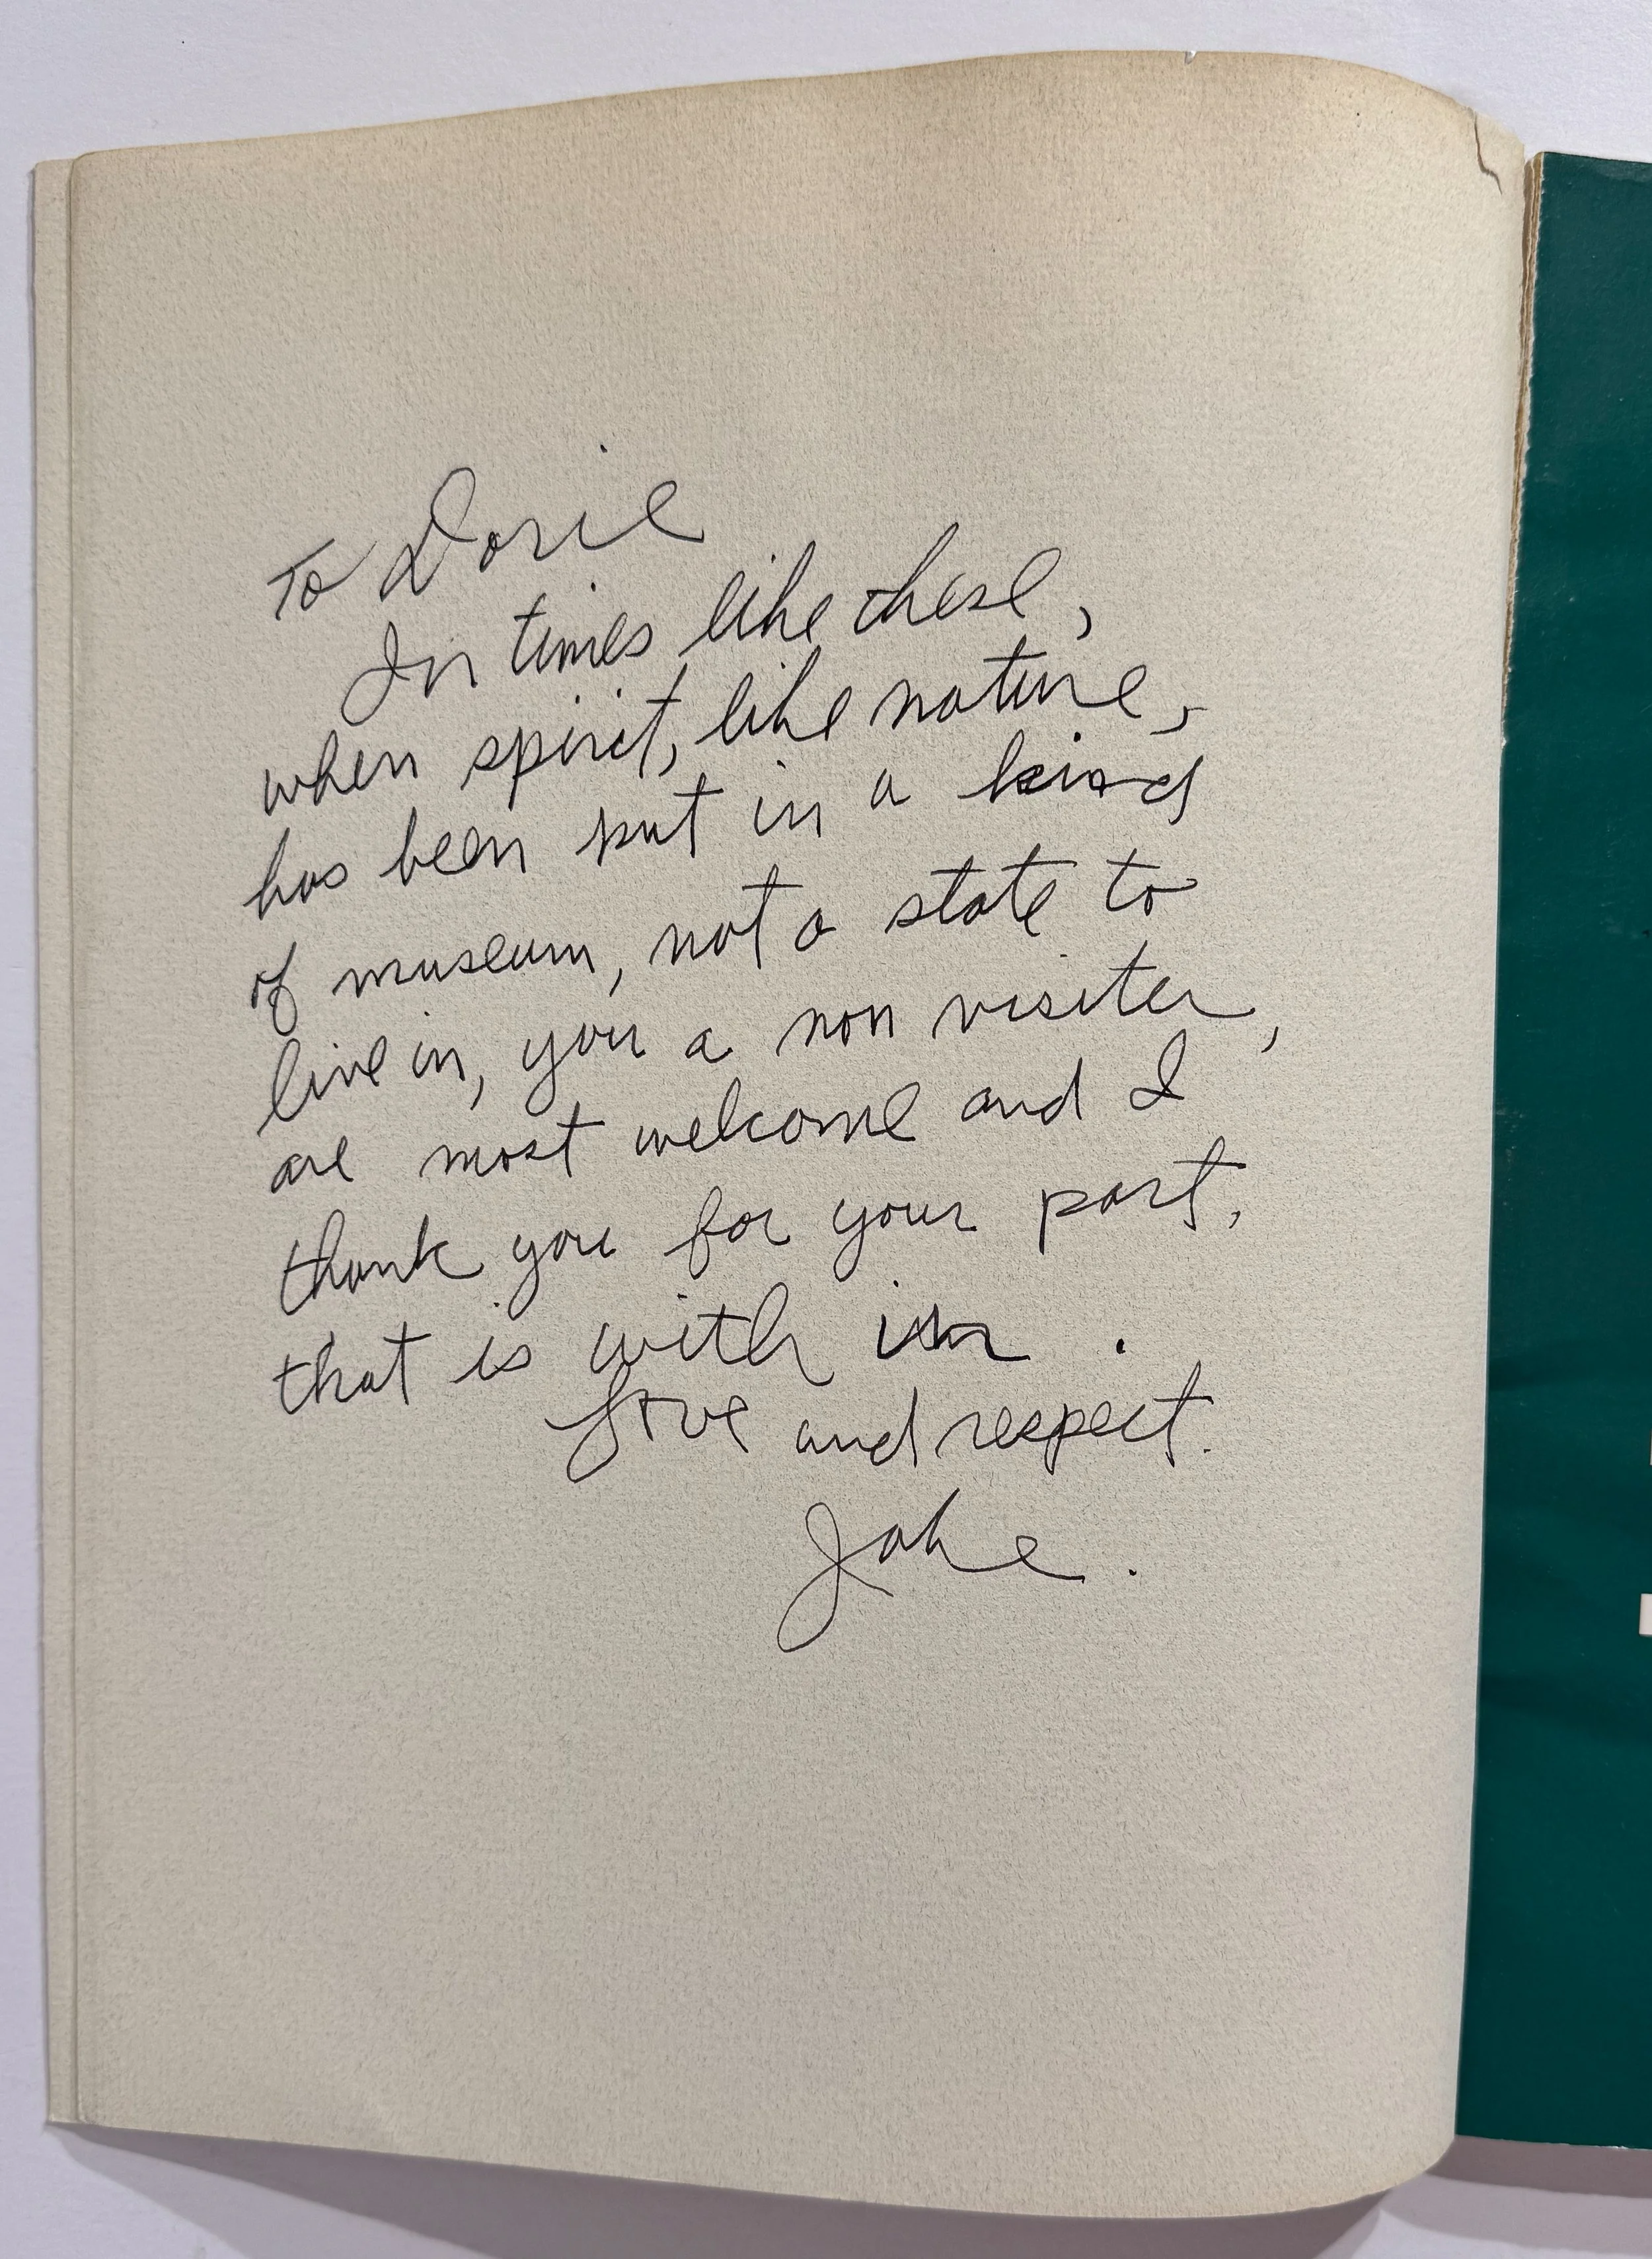 To Dorie
In times like these,
when spirit, like nature,
has been put in a kind
of museum, not a state to
live in, you a non visiter,
are most welcome and I
thank you for your part,
that is with in .
Love and respect.
Jake.